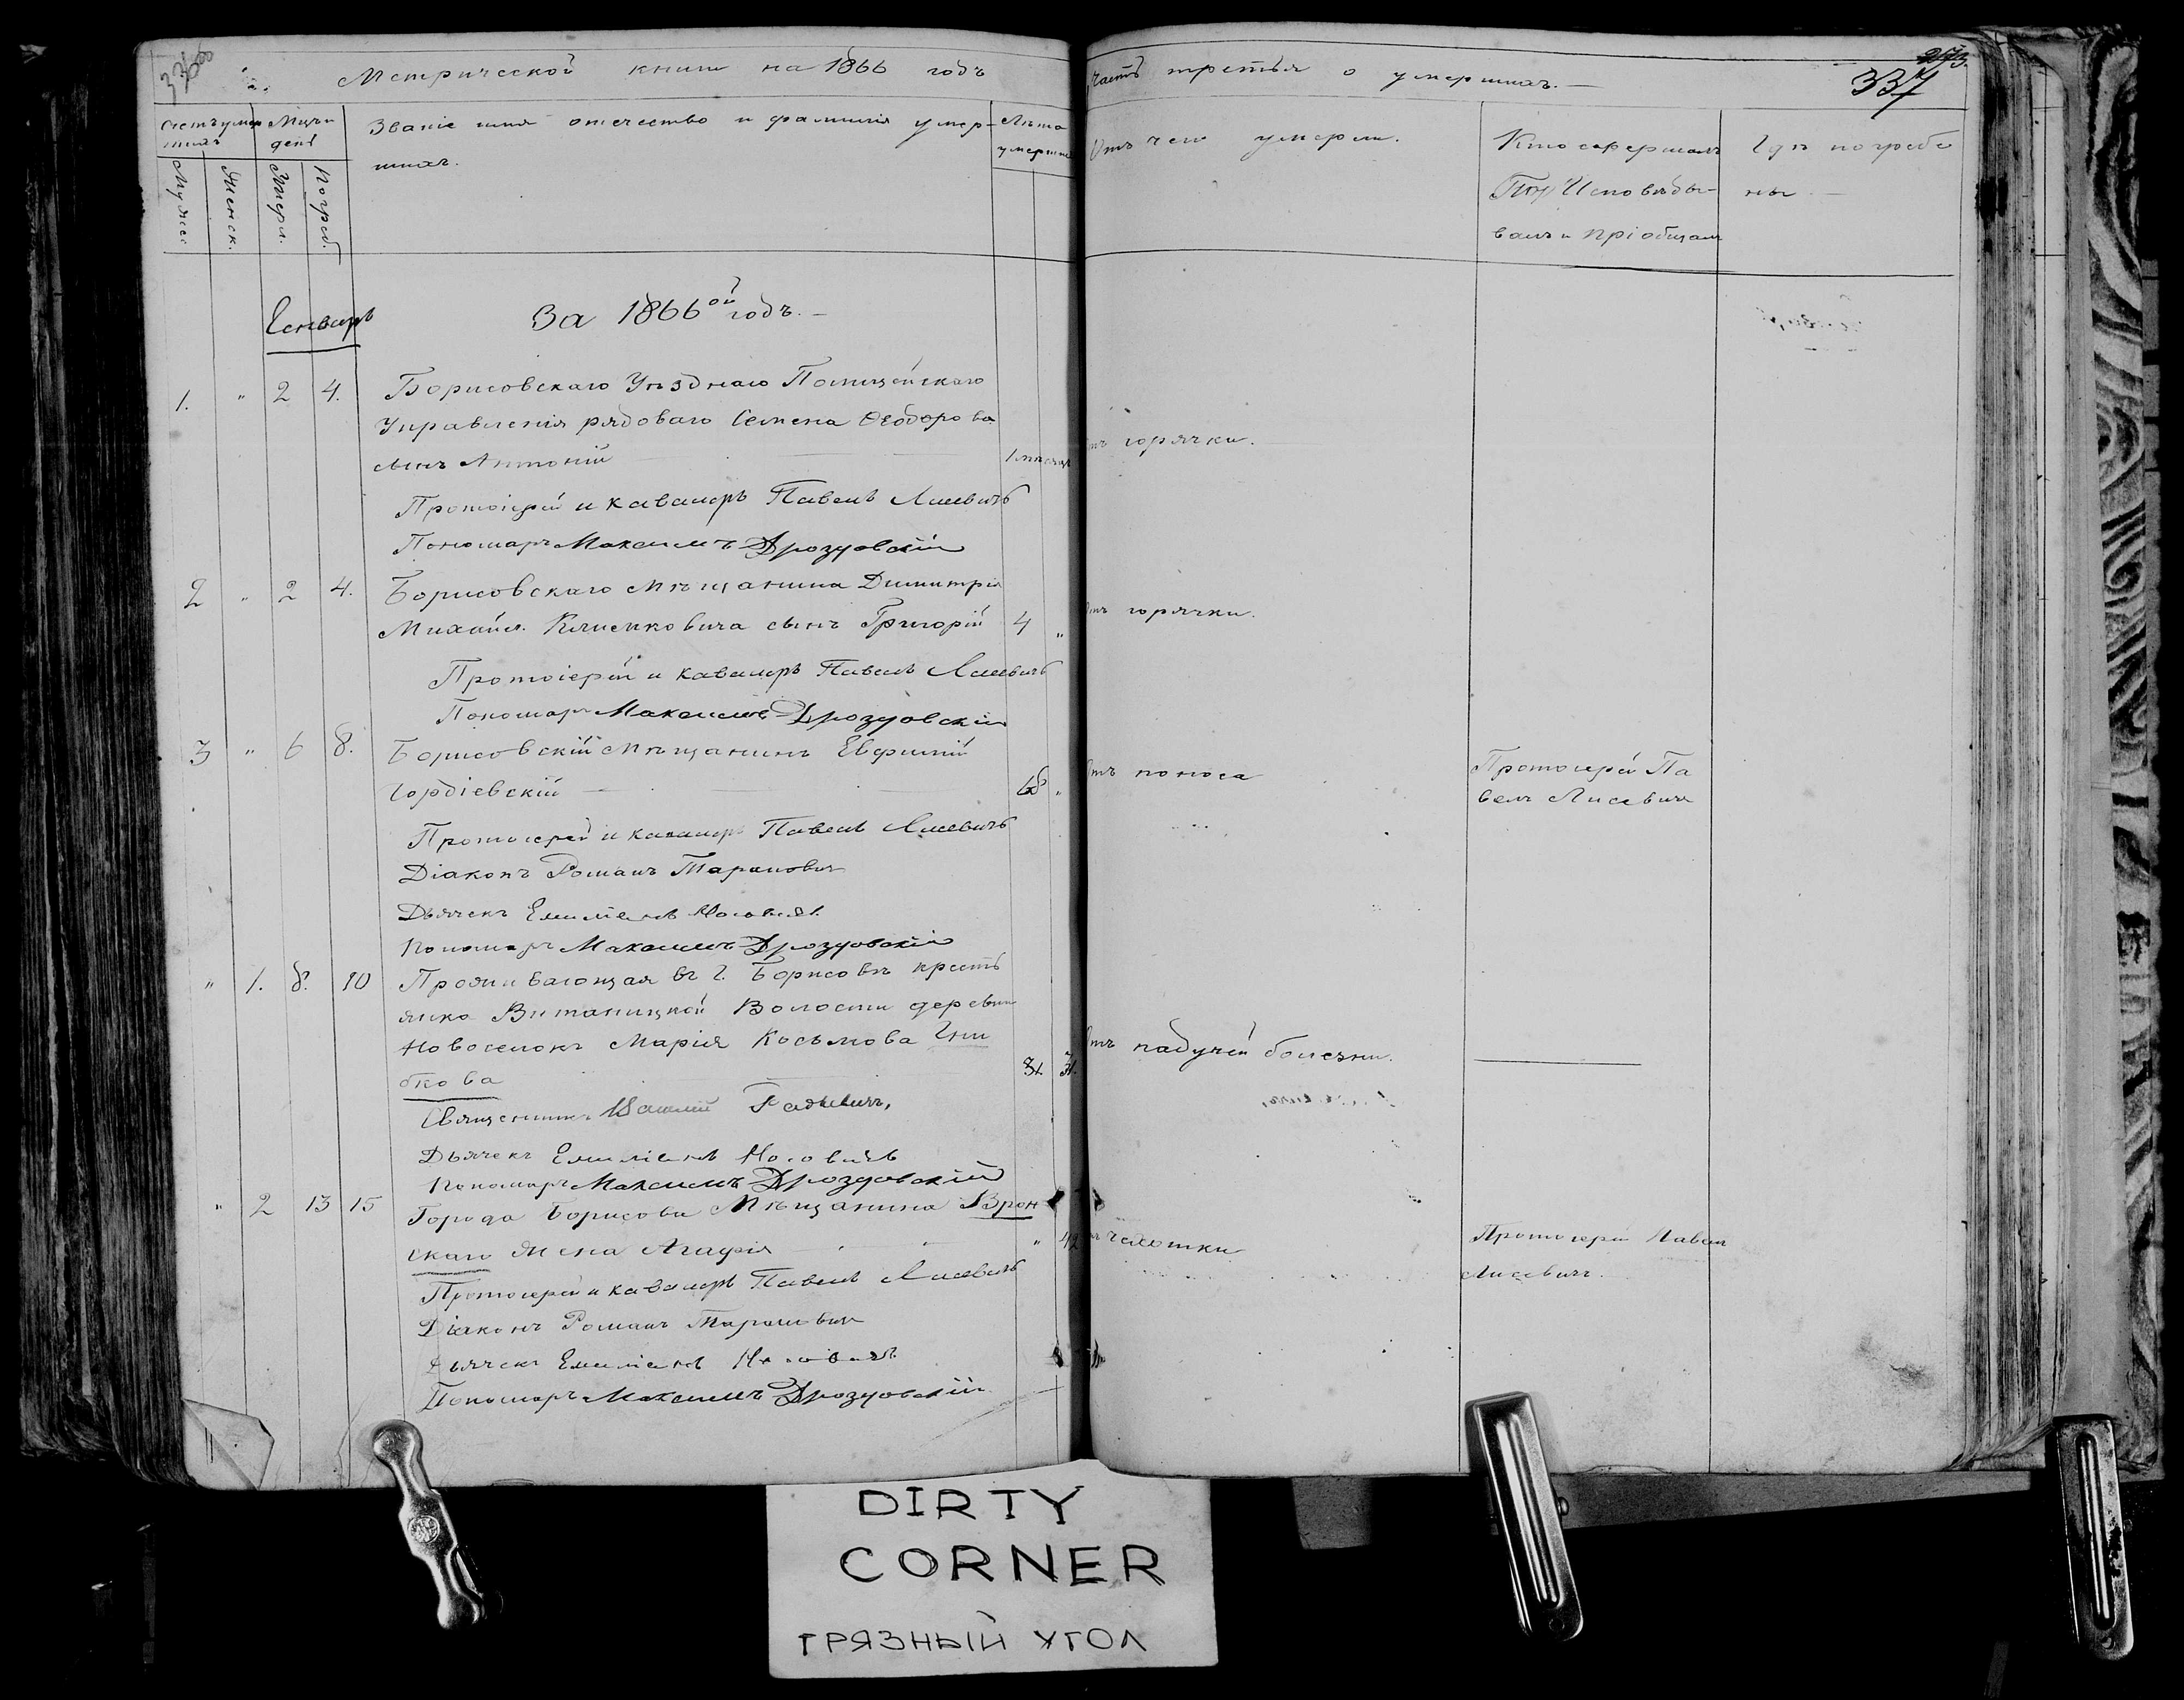 336 об
Метрической книги на 1866 годъ
Счетъ умер
шихъ
Мѣсяцъ и
день
Званіе имя отечество и фамилія умер-
шихъ.
Лѣта
умершихъ
Мужес
Женск.
Умерл.
Погреб.
Генварь
За 1866ой годъ. -
1. " 2 4. Борисовскаго Уѣзднаго Полицейскаго
Управленія рядоваго Семена Ѳеодорова
сынъ Антоній 1 мѣсяцъ
Протоіерей и кавалеръ Павелъ Лисевичъ
Пономарь Максимъ Дроздовскій
2 " 2 4. Борисовскаго Мѣщанина Димитрія
Михайл. Климковича сынъ Григорій 4 "
Протоіерей и кавалеръ Павелъ Лисевичъ
Пономарь Максимъ Дроздовскій
3 " 6 8. Борисовскій Мѣщанинъ Евфимій
Гордіевскій 68 "
Протоіерей и кавалеръ Павелъ Лисевичъ
Діаконъ Романъ Тарановичъ
Дьячекъ Емиліанъ
Пономарь Максимъ Дроздовскій
" 1. 8. 10 Проживающая въ г. Борисовѣ кресть
янка Витаницкой Волости деревни
Новоселокъ Марія Косьмова Гни
бкова 31.
Священникъ Василій Радкевичъ,
Дьячекъ Емиліанъ
Пономарь Максимъ Дроздовскій
" 2 13 15 Города Борисова Мѣщанина Врон
скаго жена Агафія " 42
Протоіерей и кавалеръ Павелъ Лисевичъ
Діаконъ Романъ Тарановичъ
Дьячекъ Емиліанъ
Пономарь Максимъ Дроздовскій
Часть третья о умершихъ. -
337
Отъ чего умерли.
Кто совершалъ
Исповѣды-
валъ и пріобщалъ
Гдѣ погребе
ны -
отъ горячки.
отъ горячки.
отъ поноса
Протоіерей Па
велъ Лисевичъ
отъ падучей болезни.
отъ чахотки
Протоіерей Павелъ
Лисевичъ.
DIRTY
CORNER
ГРЯЗНЫЙ УГОЛ